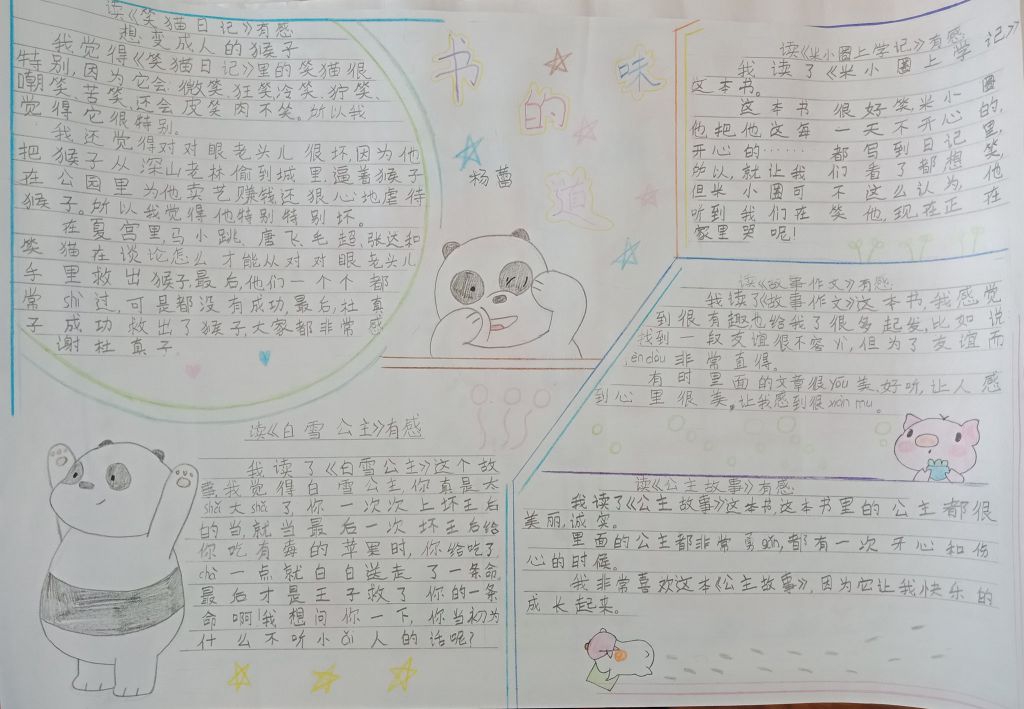 读《笑猫日记》有感
想变成人的猴子
我觉得《笑猫日记》里的笑猫很
特别,因为它会微笑、狂笑、冷笑、狞笑、
嘲笑、苦笑,还会皮笑肉不笑。所以我
觉得它很特别。
我还觉得对对眼老头儿很坏,因为他
把猴子从深山老林偷到城里,逼着猴子
在公园里为他卖艺赚钱还狠心地虐待
猴子。所以我觉得他特别特别坏。
在夏宫里,马小跳、唐飞、毛超、张达和
笑猫在谈论怎么才能从对对眼老头儿
手里救出猴子,最后,他们一个个都
常shì过,可是都没有成功,最后,杜真
子成功救出了猴子,大家都非常感
谢杜真子
书的味道
杨蕾
读《米小圈上学记》有感
我读了《米小圈上学记》
这本书。
这本书很好笑,米小圈
他把他这每一天不开心的,
开心的……都写到日记里,
所以,就让我们看了都想笑,
但米小圈可不这么认为,他
听到我们在笑他,现在正在
家里哭呢!
读《故事作文》有感
我读了《故事作文》这本书,我感觉
到很有趣,也给我了很多起发,比如说
找到一段友谊很不容义,但为了友谊而
fèn dòu非常直得。
有时里面的文章很yōu美、好听,让人感
到心里很美。让我感到很xiàn mù。
读《白雪公主》有感
我读了《白雪公主》这个故
事,我觉得白雪公主你真是太
shǎ太shǎ了,你一次次上坏王后
的当,就当最后一次坏王后给
你吃有毒的苹果时,你给吃了,
chà一点就白白送走了一条命,
最后才是王子救了你的一条
命啊!我想问你一下,你当初为
什么不听小ǎi人的话呢?
读《公主故事》有感
我读了《公主故事》这本书,这本书里的公主都很
美丽,诚实。
里面的公主都非常勇gǎn,都有一次开心和伤
心的时候。
我非常喜欢这本《公主故事》,因为它让我快乐的
成长起来。